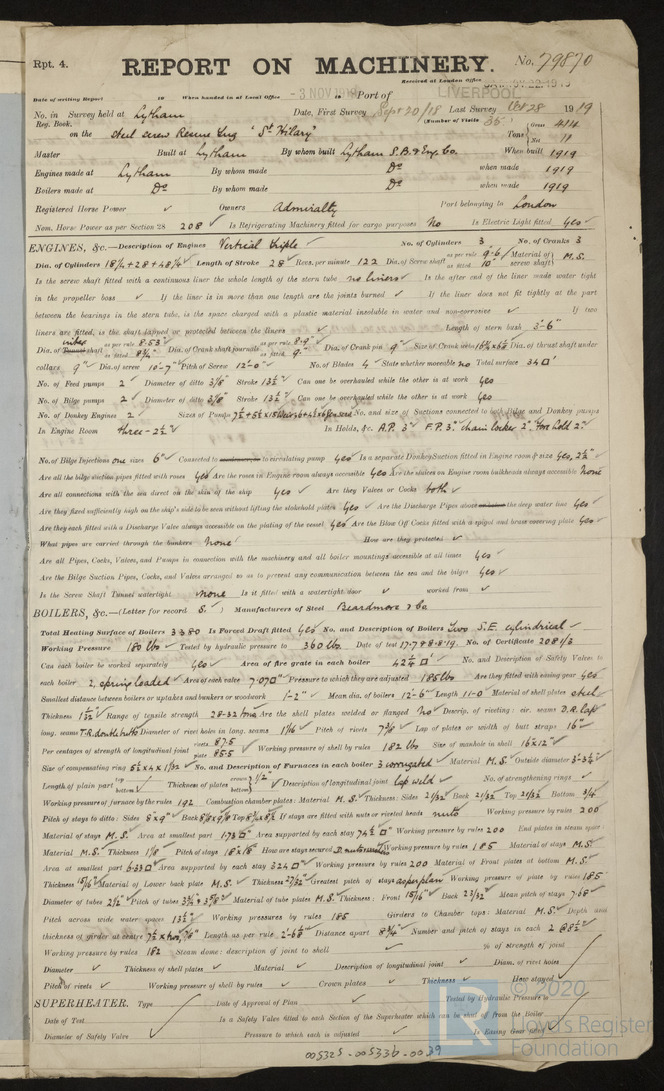 Rpt. 4.
REPORT ON MACHINERY. No. 79870
Received at London Office
Date of writing Report 19 When handed in at Local Office - 3 NOV 1919 Port of LIVERPOOL
No. in Survey held at Lytham Date, First Survey Sept 20/18 Last Survey Oct 28 1919
Reg. Book. (Number of Visits 35
on the steel screw Rescue Tug "St Hilary" Tons Gross 414 Net 11
Master Built at Lytham By whom built Lytham S.B. & Eng. Co. When built 1919
Engines made at Lytham By whom made Do when made 1919
Boilers made at Do By whom made Do when made 1919
Registered Horse Power Owners Admiralty Port belonging to London
Nom. Horse Power as per Section 28 208 Is Refrigerating Machinery fitted for cargo purposes No Is Electric Light fitted Yes
ENGINES, &c.—Description of Engines Vertical triple No. of Cylinders 3 No. of Cranks 3
Dia. of Cylinders 18 1/4 + 28 + 48 1/4 Length of Stroke 28 Revs. per minute 122 Dia. of Screw shaft as per rule 9.6 as fitted 10" Material of screw shaft M.S.
Is the screw shaft fitted with a continuous liner the whole length of the stern tube no liners Is the after end of the liner made water tight
in the propeller boss If the liner is in more than one length are the joints burned If the liner does not fit tightly at the part
between the bearings in the stern tube, is the space charged with a plastic material insoluble in water and non-corrosive If two
liners are fitted, is the shaft lapped or protected between the liners Length of stern bush 3'-6"
Dia. of Tunnel shaft as per rule 8.53 as fitted 8 3/4" Dia. of Crank shaft journals as per rule 8.9" as fitted 9" Dia. of Crank pin 9" Size of Crank webs Dia. of thrust shaft under
collars 9" Dia. of screw 10'-7" Pitch of Screw 12'-0" No. of Blades 4 State whether moveable no Total surface 34
No. of Feed pumps 2 Diameter of ditto Stroke 13 1/2" Can one be overhauled while the other is at work Yes
No. of Bilge pumps 2 Diameter of ditto Stroke 13 1/2" Can one be overhauled while the other is at work Yes
No. of Donkey Engines 2 Sizes of Pumps No. and size of Suctions connected to both Bilge and Donkey pumps
In Engine Room three - 2 1/2" In Holds, &c. A.P. 3" F.P. 3" Chain locker 2" Fore hold 2"
No. of Bilge Injections one sizes 6" Connected to circulating pump Yes Is a separate Donkey Suction fitted in Engine room & size Yes, 2 1/2"
Are all the bilge suction pipes fitted with roses Yes Are the roses in Engine room always accessible Yes Are the sluices on Engine room bulkheads always accessible None
Are all connections with the sea direct on the skin of the ship Yes Are they Valves or Cocks both
Are they fixed sufficiently high on the ship's side to be seen without lifting the stokehold plates Yes Are the Discharge Pipes above the deep water line Yes
Are they each fitted with a Discharge Valve always accessible on the plating of the vessel Yes Are the Blow Off Cocks fitted with a spigot and brass covering plate Yes
What pipes are carried through the bunkers None How are they protected
Are all Pipes, Cocks, Valves, and Pumps in connection with the machinery and all boiler mountings accessible at all times Yes
Are the Bilge Suction Pipes, Cocks, and Valves arranged so as to prevent any communication between the sea and the bilges Yes
Is the Screw Shaft Tunnel watertight None Is it fitted with a watertight door worked from
BOILERS, &c.—(Letter for record S.) Manufacturers of Steel Beardmore & Co
Total Heating Surface of Boilers 3380 Is Forced Draft fitted Yes No. and Description of Boilers Two S.E. cylindrical
Working Pressure 180 lbs Tested by hydraulic pressure to 360 lbs Date of test No. of Certificate
Can each boiler be worked separately Yes Area of fire grate in each boiler No. and Description of Safety Valves to
each boiler 2, spring loaded Area of each valve 7.07 Pressure to which they are adjusted 185 lbs Are they fitted with easing gear Yes
Smallest distance between boilers or uptakes and bunkers or woodwork 1'-2" Mean dia. of boilers 12'-6" Length 11-0 Material of shell plates steel
Thickness 1 1/32" Range of tensile strength 28-32 tons Are the shell plates welded or flanged No Descrip. of riveting: cir. seams D.R. lap
long. seams T.R. double butts Diameter of rivet holes in long. seams 1 1/16 Pitch of rivets 7 3/8 Lap of plates or width of butt straps 16"
Per centages of strength of longitudinal joint rivets 87.5 plate 85.5 Working pressure of shell by rules 182 lbs Size of manhole in shell 16 x 12"
Size of compensating ring No. and Description of Furnaces in each boiler 3 corrugated Material M.S. Outside diameter 3'-3 1/2"
Length of plain part top bottom Thickness of plates crown bottom 1/2" Description of longitudinal joint lap weld No. of strengthening rings
Working pressure of furnace by the rules 192 Combustion chamber plates: Material M.S. Thickness: Sides 21/32 Back 21/32 Top 21/32 Bottom 3/4
Pitch of stays to ditto: Sides 8 x 9" Back Top If stays are fitted with nuts or riveted heads nuts Working pressure by rules 200
Material of stays M.S. Area at smallest part 1.73 Area supported by each stay 74 1/2 Working pressure by rules 200 End plates in steam space:
Material M.S. Thickness 1 1/8 Pitch of stays 18 x 18 How are stays secured Working pressure by rules 185 Material of stays M.S.
Area at smallest part 6.33 Area supported by each stay 324 Working pressure by rules 200 Material of Front plates at bottom M.S.
Thickness 15/16" Material of Lower back plate M.S. Thickness 27/32" Greatest pitch of stays as per plan Working pressure of plate by rules 185
Diameter of tubes 2 1/2" Pitch of tubes Material of tube plates M.S. Thickness: Front 15/16" Back 23/32" Mean pitch of stays 7.68
Pitch across wide water spaces 13 1/2" Working pressures by rules 185 Girders to Chamber tops: Material M.S. Depth and
thickness of girder at centre Length as per rule Distance apart 8 3/4" Number and pitch of stays in each 2 @ 8 1/2"
Working pressure by rules 182 Steam dome: description of joint to shell % of strength of joint
Diameter Thickness of shell plates Material Description of longitudinal joint Diam. of rivet holes
Pitch of rivets Working pressure of shell by rules Crown plates Thickness How stayed
SUPERHEATER. Type Date of Approval of Plan Tested by Hydraulic Pressure to
Date of Test Is a Safety Valve fitted to each Section of the Superheater which can be shut off from the Boiler
Diameter of Safety Valve Pressure to which each is adjusted Is Easing Gear fitted
© 2020
Lloyd's Register
Foundation
005325 - 005336 - 0039